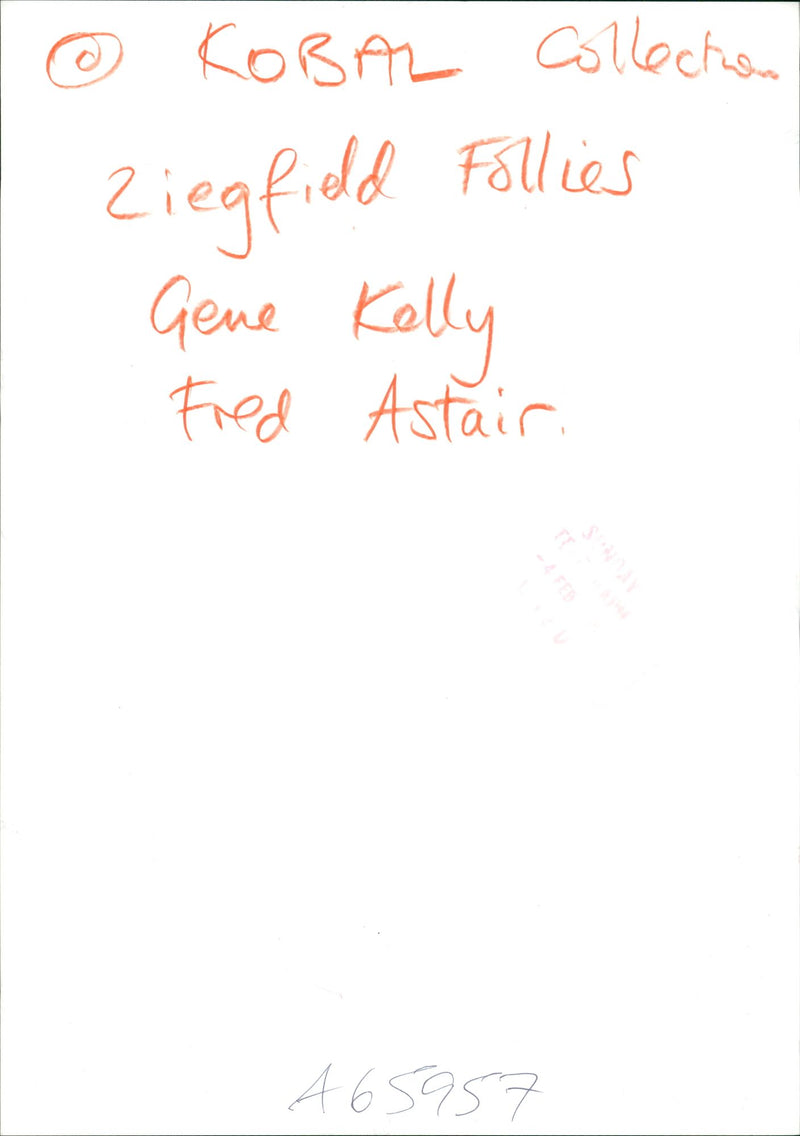 © KOBAL Collection
Ziegfield Follies
Gene Kelly
Fred Astair.
SUNDAY
-4 FEB
A65957